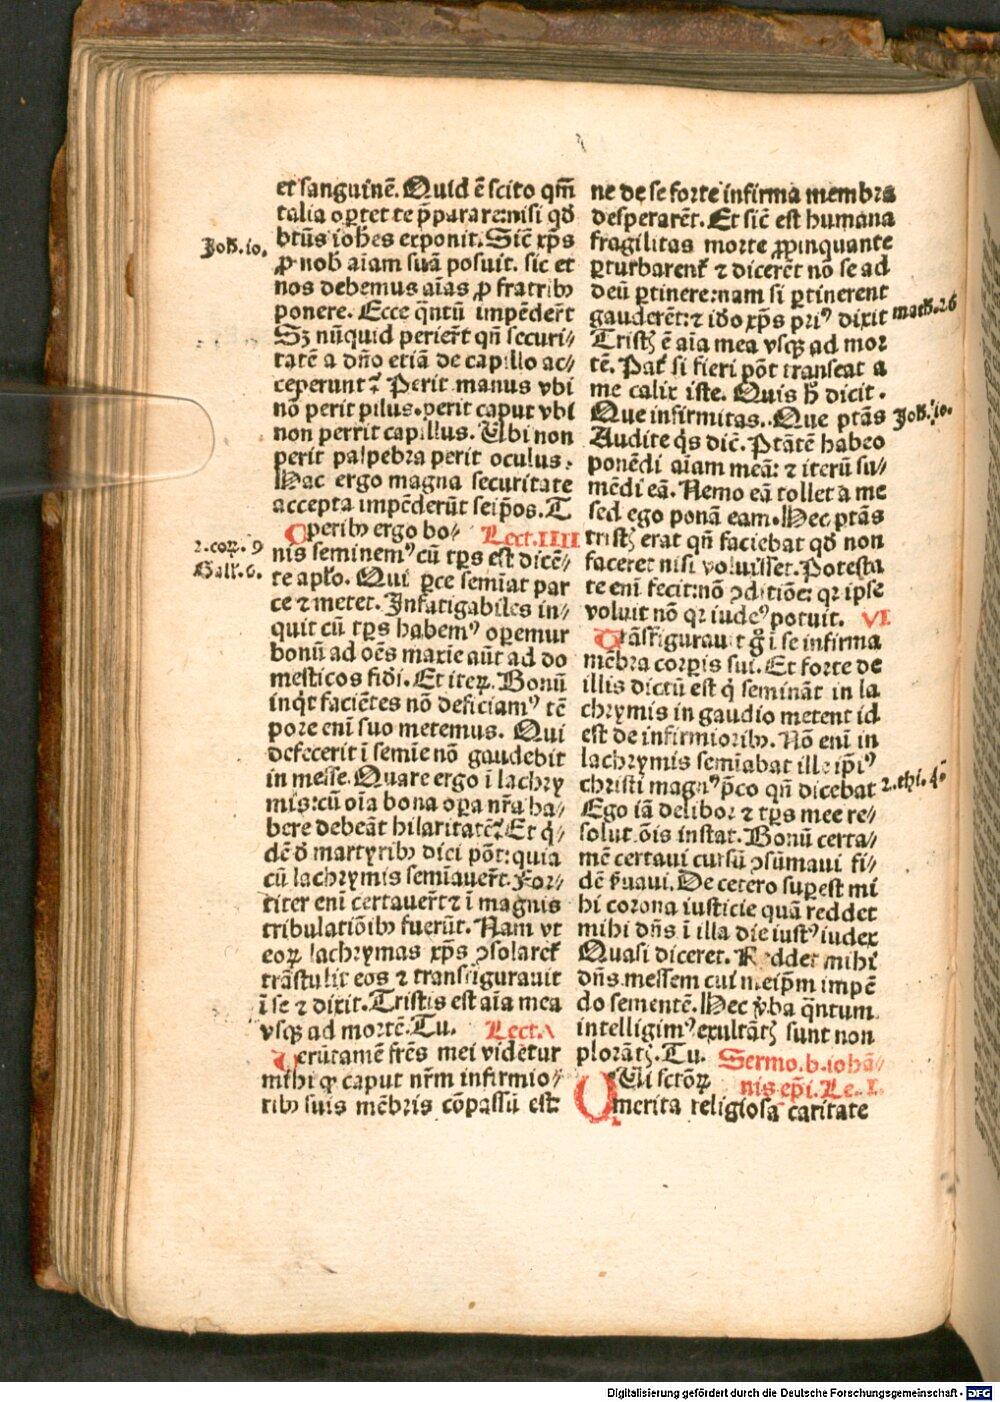 et sanguinē. Quid ē scito qm̄
talia oꝑtet te p̄parare: nisi qđ
btūs ioh̄es exponit. Sic̄ xp̄s
ꝓ nob̄ aīam suā posuit. sic et
nos debemus aīas ꝓ fratribꝫ
ponere. Ecce q̄ntū impēder̄t
Sꝫ nūquid perier̄t qn̄ securi⸗
tatē a dn̄o etiā de capillo ac⸗
ceperunt? Perit manus vbi
nō perit pilus. perit caput vbi
non perrit capillus. Ubi non
perit palpebra perit oculus.
Hac ergo magna securitate
accepta impēderūt seip̄os. T
Operibꝫ ergo bo⸗ Lect.IIII
nis seminemꝰ cū tꝑs est dicē⸗
te apl̄o. Qui ꝑce semīat par
ce ⁊ metet. Infatigabiles in⸗
quit cū tꝑs habemꝰ oꝑemur
bonū ad oēs maxīe aūt ad do
mesticos fidi. Et iteꝝ. Bonū
inq̇t faciētes nō deficiamꝰ tē
pore eni suo metemus. Qui
defecerit ī semīe nō gaudebit
in messe. Quare ergo ī lachry
mis: cū oīa bona oꝑa nr̄a ha⸗
bere debeāt hilaritatē? Et q̇⸗
dē đ martyribꝫ dici pōt: quia
cū lachrymis semīauer̄t. For⸗
titer eni certauer̄t ⁊ ī magnis
tribulatiōibꝫ fuerūt. Nam vt
eoꝝ lachrymas xp̄s ↄsolaret᷑
trāstulit eos ⁊ transfigurauit
ī se ⁊ dixit. Tristis est aīa mea
vsqꝫ ad mortē. Tu. Lect.V
Uerūtamē frēs mei videtur
mihi ꝙ caput nr̄m infirmio⸗
ribꝫ suis mēbris cōpassū est:
ne de se forte infirma membra
desperarēt. Et sic̄ est humana
fragilitas morte ꝓpinquante
ꝑturbarent᷑ ⁊ dicerēt nō se ad
deū ꝑtinere: nam si ꝑtinerent
gauderēt: ⁊ iđo xp̄s priꝰ dixit
Tristꝭ ē aīa mea vsqꝫ ad mor
tē. Pat᷑ si fieri pōt transeat a
me calix iste. Quis h̄ dicit.
Que infirmitas. Que ptās
Audite q̇s dic̄. Ptātē habeo
ponēdi aīam meā: ⁊ iterū su⸗
mēdi eā. Nemo eā tollet a me
sed ego ponā eam. Hec ptās
tristꝭ erat qn̄ faciebat qđ non
faceret nisi voluisset. Potesta
te eni fecit: nō ↄditiōe: qꝛ ipse
voluit nō qꝛ iudeꝰ potuit. VI
Trāsfigurauit gͦ ī se infirma
mēbra corꝑis sui. Et forte de
illis dictū est q̇ semināt in la
chrymis in gaudio metent id
est de infirmioribꝫ. Nō eni in
lachrymis semīabat ille ip̄iꝰ
christi magnꝰ p̄co qn̄ dicebat
Ego iā delibor ⁊ tꝑs mee re⸗
solut. ōis instat. Bonū certa⸗
mē certaui cursū ↄsūmaui fi⸗
dē ẜuaui. De cetero suꝑest mi
hi corona iusticie quā reddet
mihi dn̄s ī illa die iustꝰ iudex
Quasi diceret. Reddet mihi
dn̄s messem cui meip̄m impē
do sementē. Hec v̓ba q̄ntum
intelligimꝰ exultātꝭ sunt non
plorātꝭ. Tu. Sermo. b. iohā⸗
nis ep̄i. Le. I.
QUi sctōꝝ
merita religiosa caritate
Joh̄. io.
2. coꝝ. 9
Gall. 6.
math. 26
Joh̄. io.
2. thi. 4
Digitalisierung gefördert durch die Deutsche Forschungsgemeinschaft - DFG